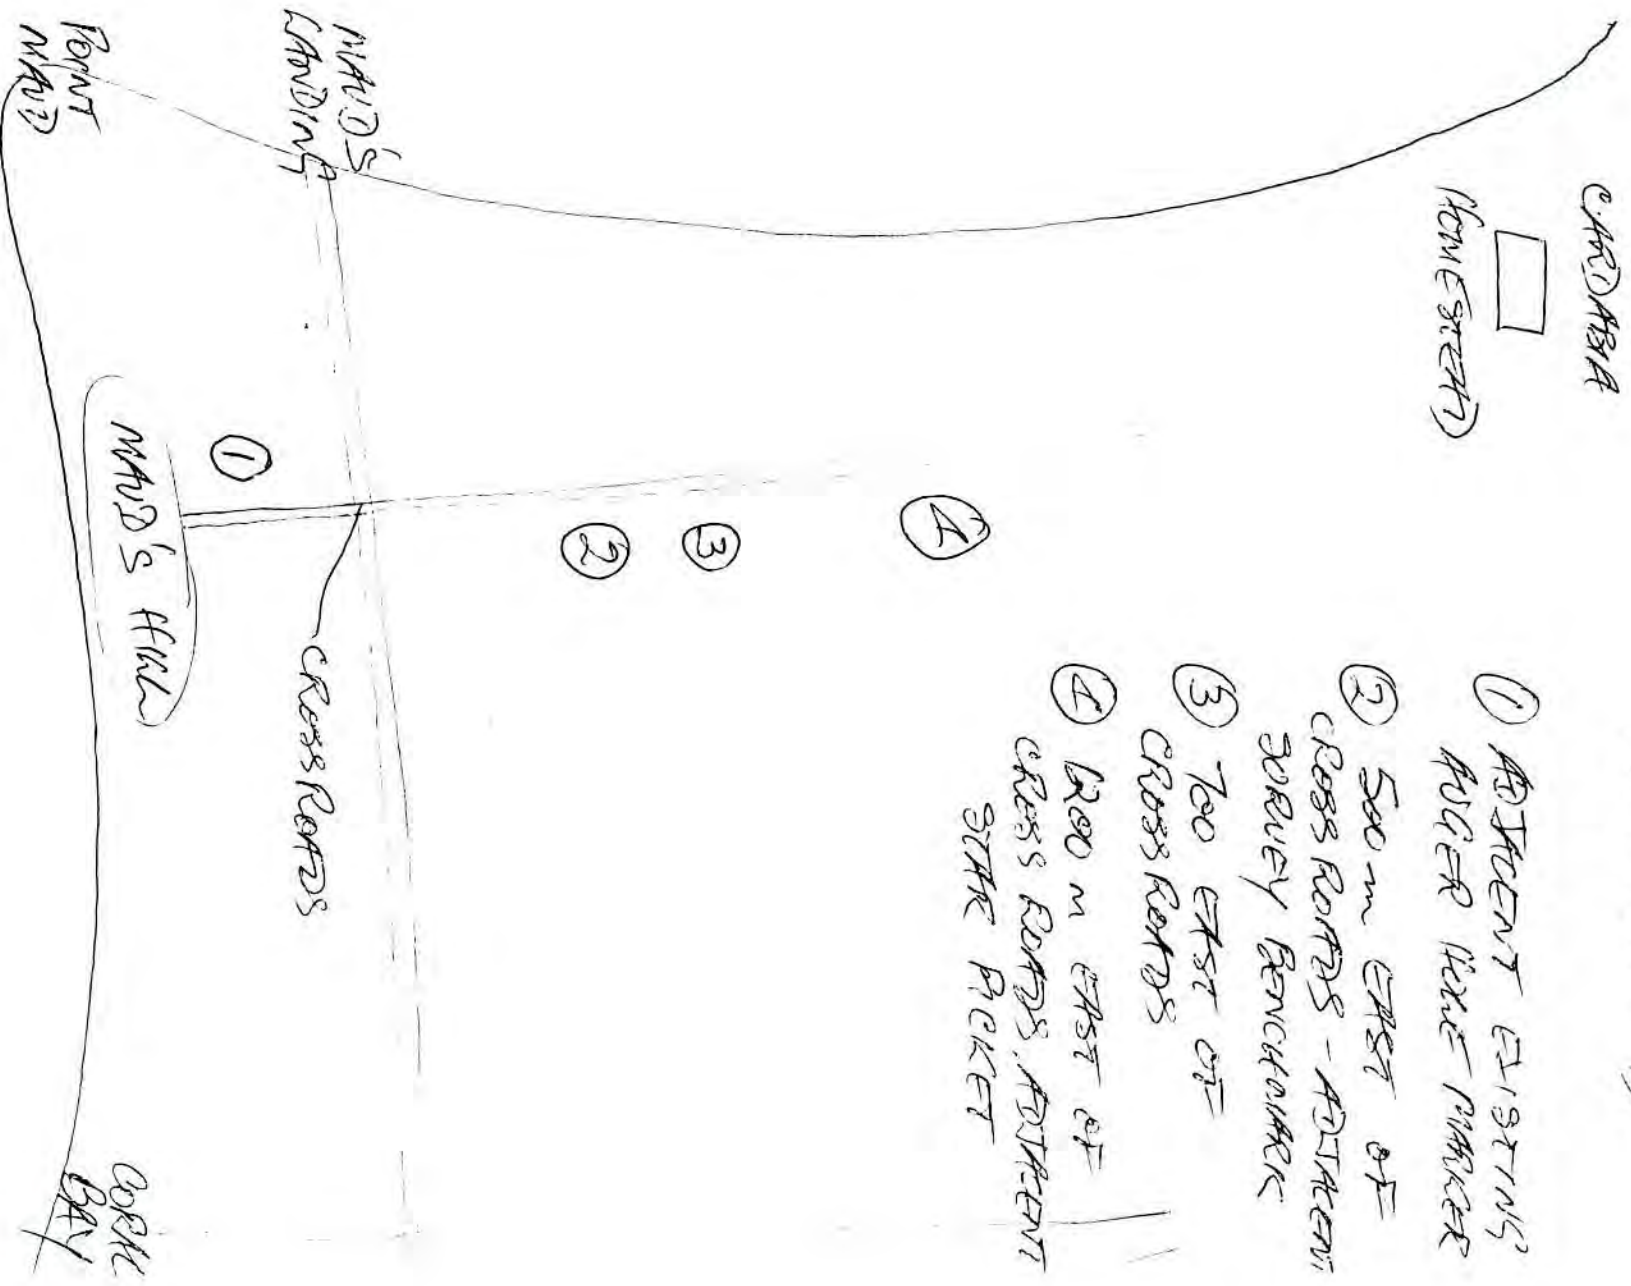 CARDABIA
HOMESTEAD
MAUD'S
LANDING
POINT
MAUD
①
MAUD'S HILL
②
③
④
CROSSROADS
CORAL
BAY
① ADJACENT EXISTING
AUGER HOLE MARKER
② 500 m EAST OF
CROSS ROADS - ADJACENT
SURVEY BENCHMARK
③ 700 EAST OF
CROSSROADS
④ 1200 m EAST OF
CROSS ROADS, ADJACENT
STAR PICKET